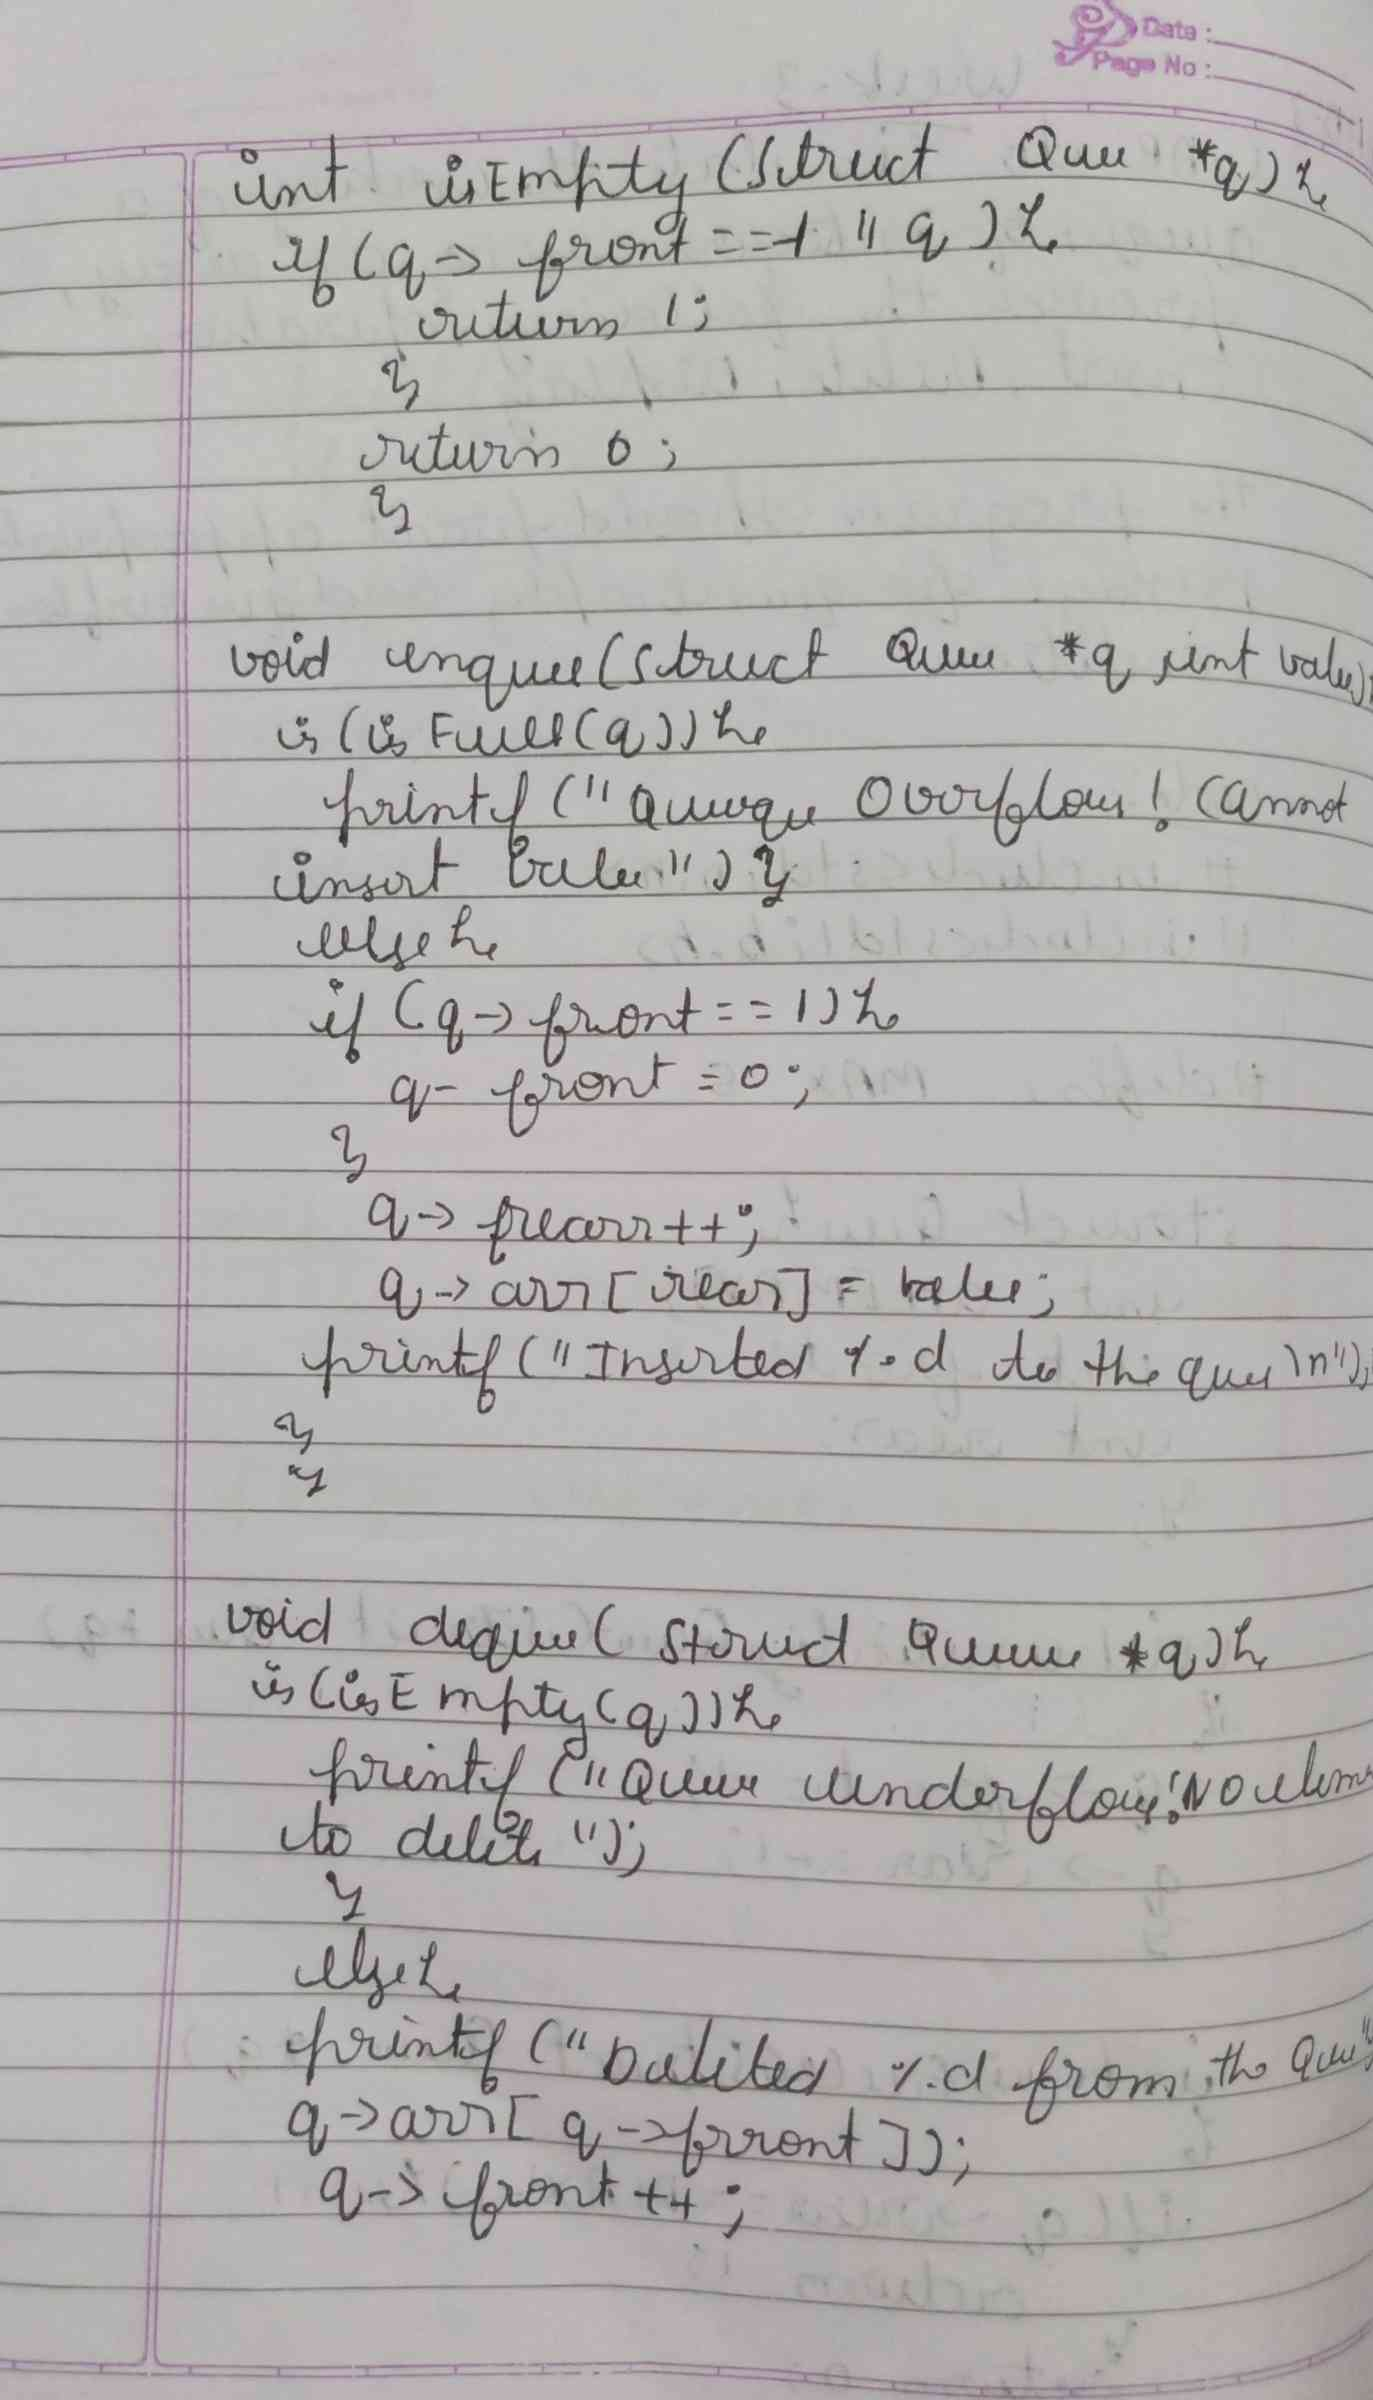 Date :
Page No :
int isEmpty (struct Queue *q) {
if (q-> front == -1 || q ) {
return 1;
}
return 0 ;
}
void enqueue (struct Queue *q, int value)
is (is Full (q)) {
printf (" Queue Overflow ! Cannot
insert value ") }
else {
if (q -> front == 1) {
q- front = 0 ;
}
q -> rear++ ;
q -> arr [ rear] = value;
printf (" Inserted %d to the queue \n");
}
}
void dequeue ( struct Queue *q) {
is (isEmpty (q)) {
printf (" Queue Underflow! No elem
to delete ");
}
else {
printf (" Deleted %d from the Queue"
q -> arr [ q -> front ] );
q -> front ++ ;